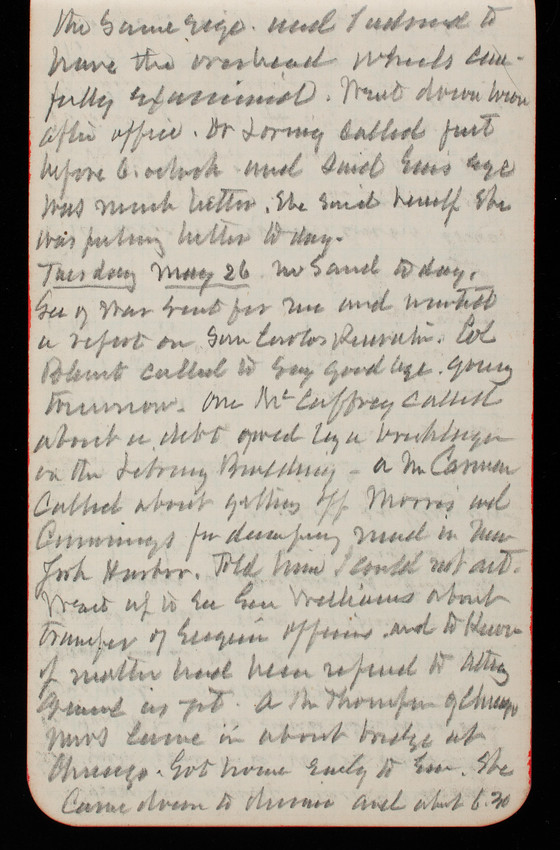 the same size. and I advised to
have the overhead wheels care-
fully examined. Went down town
after office. Dr Loring called just
before 6. oclock and said Ems eye
was much better. She said herself she
was feeling better to day.
Tuesday May 26 no Sand to day.
Sec of War sent for me and wanted
a report on San Carlos Reservation. Col
Blunt called to say good bye. going
tomorrow. One McCaffrey called
about a debt owed by a bricklayer
on the Library Building - a Mr Carman
called about getting off Morris and
Cummings for dumping mud in New
York Harbor. Told him I could not act.
Went up to see Gen Williams about
transfer of Engin officers. and to know
if matter had been referred to Atty
General as yet. A Mr Thompson of Chicago
came in about bridge at
Chicago. Got home early to Em. She
came down to dinner and about 6.30